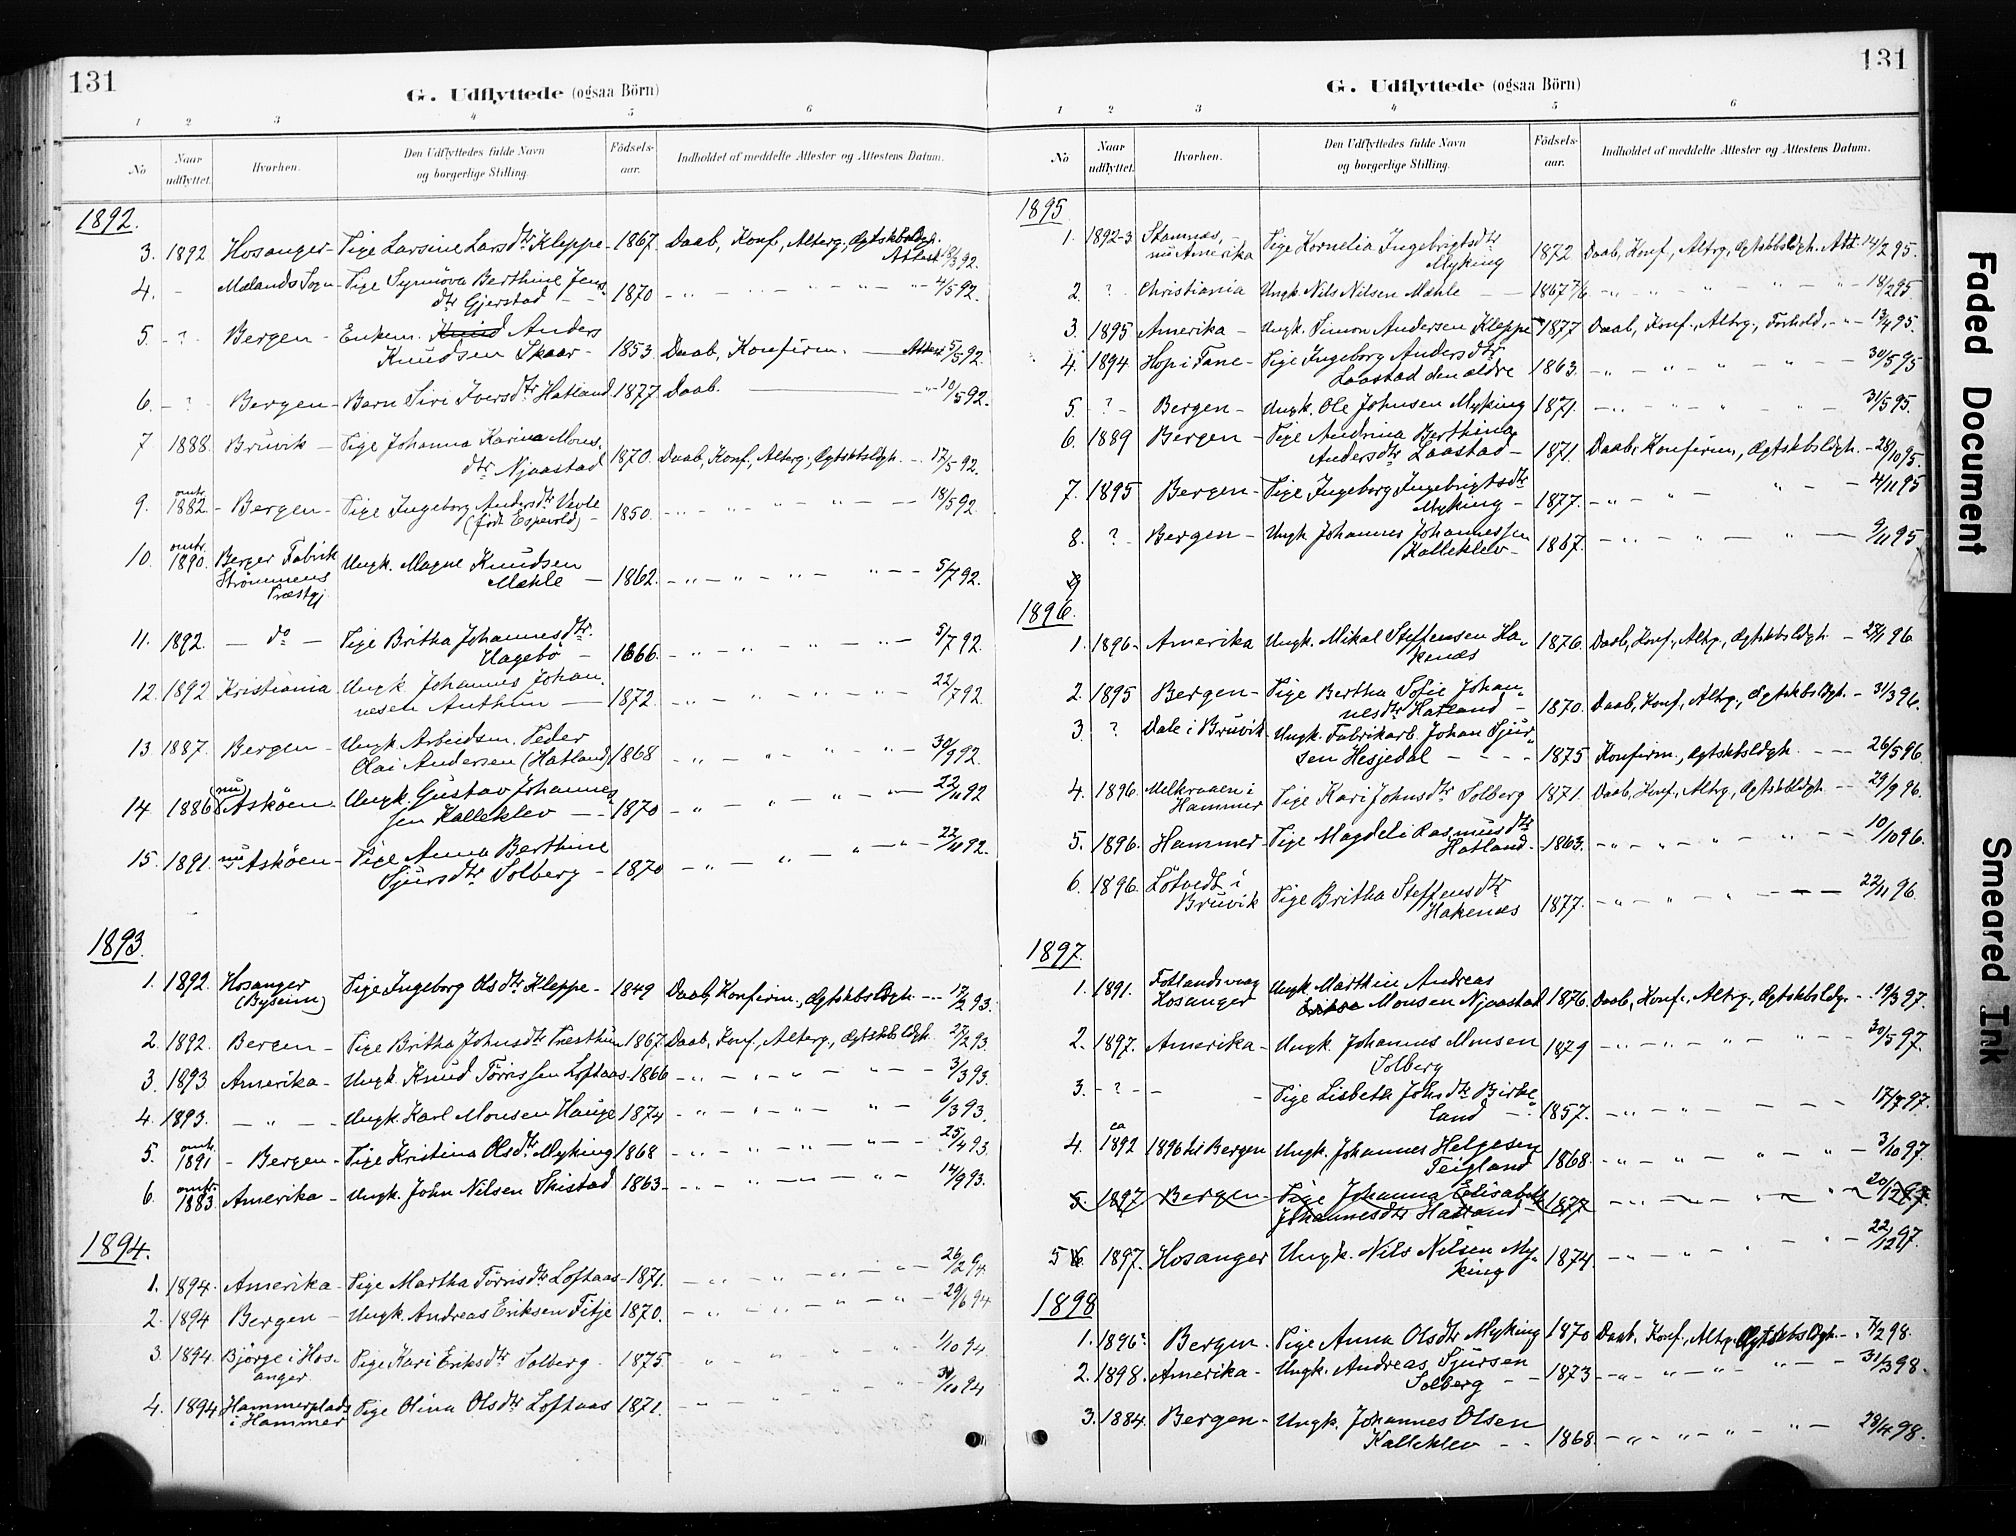 131
G. Udflyttede (ogsaa Börn)
1 2 3 4 5 6
No Naar udflyttet. Hvorhen. Den Udflyttedes fulde Navn og borgerlige Stilling. Födsels-aar. Indholdet af meddelte Attester og Attestens Datum.
1892.
3. 1892 Hosanger - Pige Larsine Larsdtr Kleppe - 1867 Daab, Konf., Alterg., Ægtskbsldgh. Attest 18/3 92.
4. - Mælands Sogn - Pige Synnöva Berthine Jens-
dtr Gjerstad - - 1870 - „ - „ - „ - „ - 4/5 92.
5. - ? - Bergen - Enkem. Knud Anders
Knudsen Skaar - 1853. Daab, Konfirm. — Attest 5/5 92.
6. - ? Bergen - Barn Siri Iversdtr Hatland 1877 Daab. — „ - 10/5 92.
7 1888. Bruvik - Pige Johanna Karina Mons-
dtr Njaastad 1870. Daab, Konf., Alterg., Ægtskbsldgh. - . 17/5 92.
9. omtr. 1882. - Bergen - Pige Ingeborg Andersdtr Vevle
(födt Espevold) - 1850. - „ - „ - „ - 18/5 92
10. omtr. 1890. Berger Fabrik Ungk. Magne Knudsen
Strömmens Mæhle - 1862. - „ - „ - „ - „ - 5/7 92.
Præstgj.
11. 1892. - do - Pige Britha Johannesdtr.
Hagebö - 1866. - „ - „ - „ - „ - 5/7 92.
12. 1892 Kristiania Ungk. Johannes Johan-
nesen Anthun — 1872. - „ - „ - „ - „ - 22/7 92.
13 1887. Bergen - Ungk. Arbeidsm. Peder
Olai Andersen (Hatland) 1868 - „ - „ - „ - 30/9 92.
14 1886 (nu) Asköen. Ungk. Gustav Johannes-
sen Kalleklev — 1870 - „ - „ - „ - 22/11 92
15. 1891. nu Asköen - Pige Anna Berthine
Sjursdtr Solberg - 1870 - „ - „ - „ - 22/11 92.
1893.
1. 1892. Hosanger Pige Ingeborg Olsdtr Kleppe - 1849 Daab, Konfirm., Ægtskbsldgh. - - 17/2 93.
(Byseim)
2. 1892. Bergen - Pige Britha Johnsdtr Præsthun 1867. Daab, Konf., Alterg., Ægtskbsldgh. 27/2 93.
3. 1893 Amerika - Ungk. Knud Törrissen Loftaas - 1866 - „ - „ - „ - „ - 3/3 93.
4. 1893. - „ - Ungk. Karl Monsen Hauge 1874 - „ - „ - „ - 6/3 93.
5. omtr. 1891 - Bergen - Pige Kristina Olsdtr Myking 1868 - „ - „ - „ - „ - 25/4 93.
6. omtr. 1883. Amerika - Ungk. John Nilsen Skistad 1863 - „ - „ - „ - „ - 14/9 93.
1894.
1. 1894. Amerika - Pige Martha Törrisdtr Loftaas - 1871. - „ - „ - „ - „ - 26/2 94
2. 1894 Bergen - Ungk. Andreas Eriksen Fitje 1870. - „ - „ - „ - 29/6 94
3. 1894. Björge i Hos- Pige Kari Eriksdtr Solberg. 1875 „ - „ - „ 1/10 94.
anger.
4. 1894 Hammerplads Pige Olina Olsdtr Loftaas 1871. - „ - „ - „ 30/10 94
i Hammer
131
G. Udflyttede (ogsaa Börn)
1 2 3 4 5 6
No Naar udflyttet. Hvorhen. Den Udflyttedes fulde Navn og borgerlige Stilling. Födsels-aar. Indholdet af meddelte Attester og Attestens Datum.
1895.
1. 1892-3. Stamnæs, - Pige Kornelia Ingebrigtsdtr
nu Amerika Myking 1872 Daab, Konf., Altrg., Ægtskbsldgh. Att. 14/2 95.
2. ? Christiania Ungk. Nils Nilsen Mæhle - 1867 7/6 - „ - „ - „ - „ - 18/2 95.
3. 1895 Amerika - Ungk. Simon Andersen Kleppe 1877 Daab, Konf., Altrg., Forhold, - „ - 13/4 95.
4. 1894 Hop i Fane - Pige Ingeborg Andersdtr
Laastad den ældre 1863. - „ - „ - „ - „ 30/5 95
5. - ? - Bergen - Ungk. Ole Johnsen Myking 1871. - „ - „ - „ - 31/5 95.
6. 1889 Bergen - Pige Andrina Berthina
Andersdtr Laastad - 1871. Daab, Konfirm., Ægtskbsldgh. - 28/10 95.
7. 1895 Bergen - Pige Ingeborg Ingebrigtsdtr
Myking - 1877. - „ - „ - „ - 4/11 95
8. ? Bergen - Ungk. Johannes Johannessen
Kalleklev - 1867. - „ - „ - „ — 9/11 95
9
1896.
1. 1896. Amerika Ungk. Mikal Steffensen Ha-
kenæs 1876. Daab, Konf., Altrg., Ægtskbsldgh. - 28/1 96
2. 1895 Bergen - Pige Bertha Sofie Johan-
nesdtr Hatland - 1870. Daab, Konf., Altrg., Ægtskbsldgh. - 31/3 96.
3. ? Dale i Bruvik. Ungk. Fabrikarb. Johan Sjur-
sen Hesjedal - - - 1875 Konfirm., Ægtskbsldgh. - - - 26/5 96.
4. 1896. Melkraaen i
Hammer Pige Kari Johnsdtr Solberg 1871. Daab, Konf., Altrg., Ægtskbsldgh. - - 29/9 96.
5. 1896. Hammer - Pige Magdeli Rasmusdtr
Hatland - 1863. - „ - „ - „ - „ - 10/10 96.
6. 1896. Lötvedt i Pige Britha Steffensdtr
Bruvik Hakenæs 1877. - „ - „ - „ - 22/11 96.
1897.
1. 1891. Fotlandsvaag Ungk. Marthin Andreas
Hosanger Monsen Njaastad 1876. Daab, Konf., Altrg., Ægtskbsldgr. - 19/3 97.
2. 1897. Amerika - Ungk. Johannes Monsen 1879 - „ - „ - „ - „ 30/5 97.
Solberg
3. - ? - - - Pige Lisbeth Johsdtr Birke-
land - 1857. - „ - „ - „ - 17/7 97.
4. ca 1892 1896 til Bergen Ungk. Johannes Helgesen
Teigland 1868. - „ - „ - „ - 3/10 97.
5. 1897 Bergen - Pige Johanna Elisabeth
Johannesdtr Hatland - 1877 - „ - „ - „ - 20/12 97.
5 6. 1897. Hosanger Ungk. Nils Nilsen My-
king 1874. - „ - „ - „ - 22/12 97.
1898
1. 1896? Bergen. Pige Anna Olsdtr Myking 1870 Daab, Konf., Altrg., Ægtskbsldgh. - 7/2 98.
2. 1898. Amerika - Ungk. Andreas Sjursen
Solberg - - 1873 - „ - „ - „ - 31/3 98.
3. 1884. Bergen - Ungk. Johannes Olsen
Kalleklev - - 1868. - „ - „ - „ - „ - 28/4 98.
Faded Document
Smeared Ink